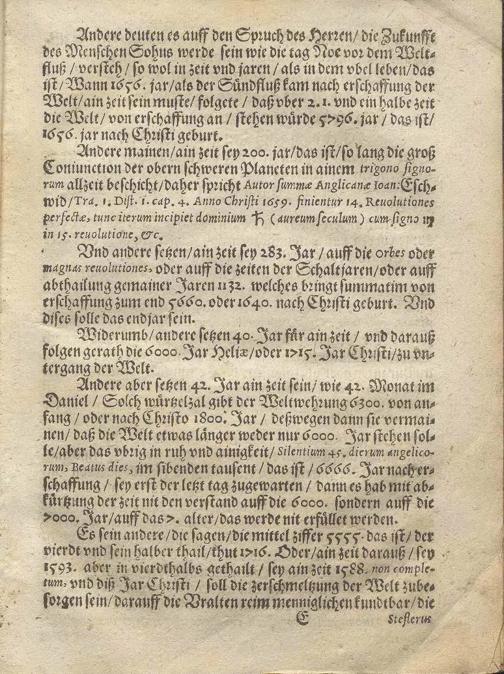 Andere deuten es auff den Spruch des Herren/ die Zukunfft
des Menschen Sohns werde sein wie die tag Noe vor dem Welt-
fluß/ versteh/ so wol in zeit vnd jaren/ als in dem vbel leben/ das
ist/ Wann 1656. jar/ als der Sündfluß kam nach erschaffung der
Welt/ ain zeit sein muste/ folgete/ daß vber 2.1. vnd ein halbe zeit
die Welt/ von erschaffung an/ stehen würde 5796. jar/ das ist/
1656. jar nach Christi geburt.
Andere mainen/ ain zeit sey 200. jar/ das ist/ so lang die groß
Coniunction der obern schweren Planeten in ainem trigono signo-
rum allzeit beschicht/ daher spricht Autor summæ Anglicanæ Ioan: Esch-
wid/ Tra. 1. Dist. 1. cap. 4. Anno Christi 1659. finientur 14. Reuolutiones
perfectæ, tunc iterum incipiet dominium ♄ (aureum seculum) cum signo ♏
in 15. reuolutione, &c.
Vnd andere setzen/ ain zeit sey 283. Jar/ auff die orbes oder
magnas reuolutiones, oder auff die zeiten der Schaltjaren/ oder auff
abthailung gemainer Jaren 1132. welches bringt summatim von
erschaffung zum end 5660. oder 1640. nach Christi geburt. Vnd
dises solle das endjar sein.
Widerumb/ andere setzen 40. Jar für ain zeit/ vnd darauß
folgen gerath die 6000. Jar Heliæ/ oder 1715. Jar Christi/ zu vn-
tergang der Welt.
Andere aber setzen 42. Jar ain zeit sein/ wie 42. Monat im
Daniel/ Solch würtzelzal gibt der Weltwehrung 6300. von an-
fang/ oder nach Christo 1800. Jar/ deßwegen dann sie vermai-
nen/ daß die Welt etwas länger weder nur 6000. Jar stehen sol-
le/ aber das vbrig in ruh vnd ainigkeit/ Silentium 45. dierum angelico-
rum, Beatus dies, im sibenden tausent/ das ist/ 6666. Jar nach er-
schaffung/ sey erst der letzt tag zugewarten/ dann es hab mit ab-
kürtzung der zeit nit den verstand auff die 6000. sondern auff die
7000. Jar/ auff das 7. alter/ das werde nit erfüllet werden.
Es sein andere/ die sagen/ die mittel ziffer 5555. das ist/ der
vierdt vnd sein halber thail/ thut 1716. Oder/ ain zeit darauß/ sey
1593. aber in vierdthalbs gethailt/ sey ain zeit 1588. non comple-
tum, vnd diß Jar Christi/ soll die zerschmeltzung der Welt zube-
sorgen sein/ darauff die Vralten reim menniglichen kundtbar/ die
E Stoflerus